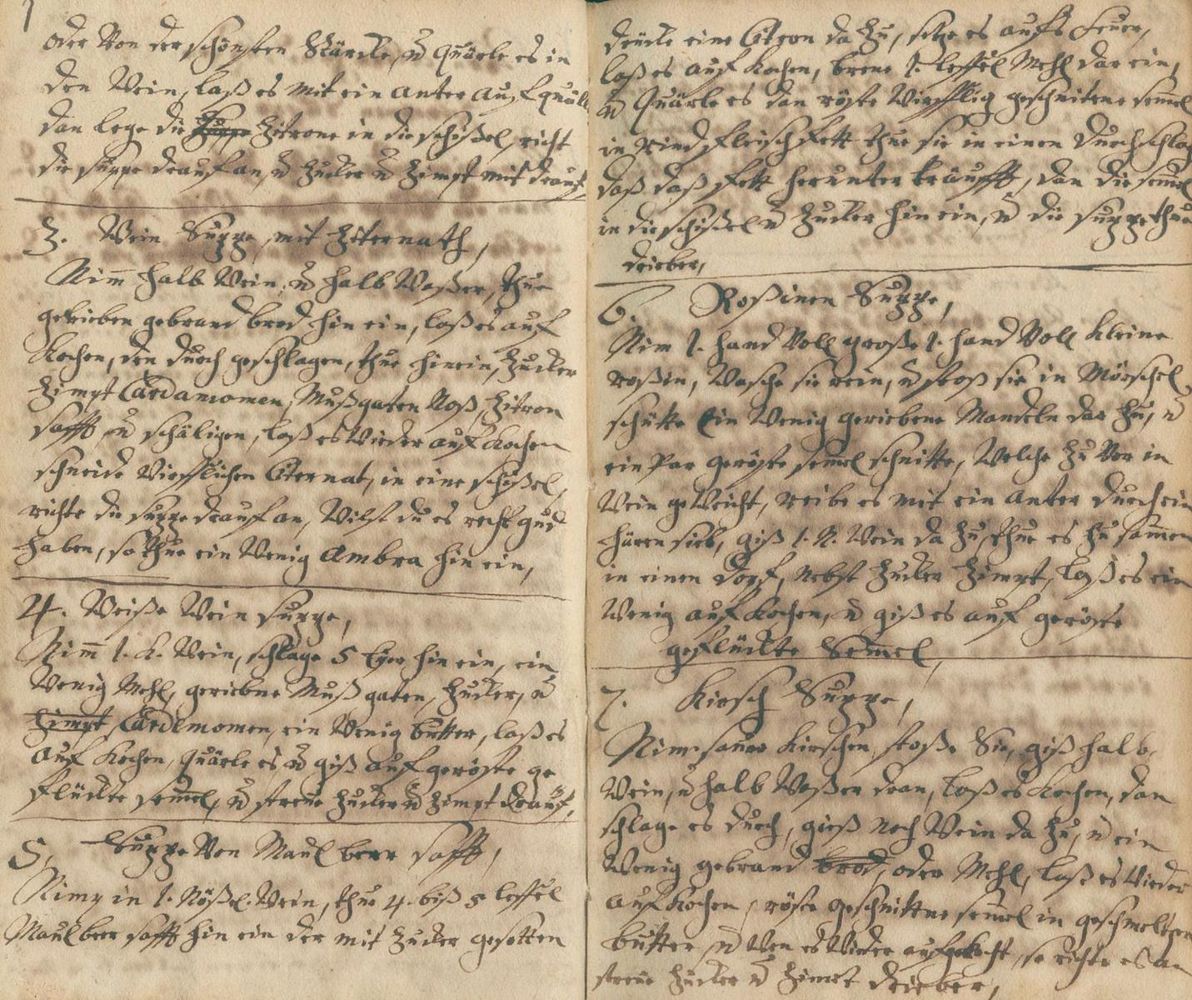 oder Von der schönsten Stärcke, v̈ Quärle es in
den Wein, laß es mit ein anter auf quäll
dan lege die Zitrone in die schißel, richt
die suppe drauf an, v̈ Zucker v̈ Zimpt mit drauf,
3. Wein Suppe, mit Ziternath,
Nim̅ halb Wein, v̈ halb Waßer, thue
gerieben gebrand brod hin ein, laß es auf
Kochen, den durch geschlagen, thue hinein, Zucker
Zimpt Cardamomen, Mußgaten Noß, Zitron
safft v̈ schäligen, laß es Wieder auf Kochen
schneide Wirfflichen Citernat, in eine schißel,
richte die suppe drauf an, Wilst du es recht gud
haben, so thue ein Wenig Ambra hin ein,
4. Weiße Wein suppe,
Nim̅ 1. K. Wein, schlage 5 Eyer hin ein, ein
Wenig Mehl, geriebne Mußgaten, Zucker, v̈
Zimpt, Cardemomen, ein Wenig butter, laß es
auf Kochen, Quärle es v̈ giß auf geröste ge
flückte semel, v̈ streue Zucker v̈ Zimpt drauf,
5, Suppe Von Maul beer safft,
Nim in 1. Nößel Wein, thue 4. biß 5 leffel
Maulbeer safft hin ein der mit Zucker gesotten
drücke eine Citron da Zu, setze es aufs feuer,
laß es auf Kochen, brene 1. leffel Mehl dar ein,
v̈ Quärle es dan röste Wirfflig geschnitene semel
in Rind fleisch fett thue sie in einen durchschlag
daß daß fett herunter träufft, dan die semel
in die schißel v̈ Zucker hin ein, v̈ die suppe thue
drieber,
6. Roßinen Suppe,
Nim 1. hand Voll große 1. hand Voll Kleine
roßin, Wasche sie rein, v̈ stoß sie in Mörschel,
schütte ein Wenig geriebene Mandeln dar Zu, v̈
ein Par geröste semel schnitte, Welche Zu Vor in
Wein geWeicht, reibe es mit ein anter durch ein
hären sieb, giß 1. N. Wein da Zu, thue es Zu samen
in einen dopf, nebst Zucker Zimpt, laß es ein
Wenig auf Kochen, v̈ giß es auf geröste
geflückte Semel,
7. Kirsch Suppe,
Nim sauer Kirschen, stoße Sie, giß halb
Wein, v̈ halb Waßer dran, laß es Kochen, dan
schlage es durch, gieß noch Wein da Zu, v̈ ein
Wenig gebrand brod, oder Mehl, laß es Wieder
auf Kochen, röste geschnittne semel in geschmeltzer
butter, v̈ Wen es Wieder aufgekocht, so richte es an
streue Zucker v̈ Zimpt drieber,